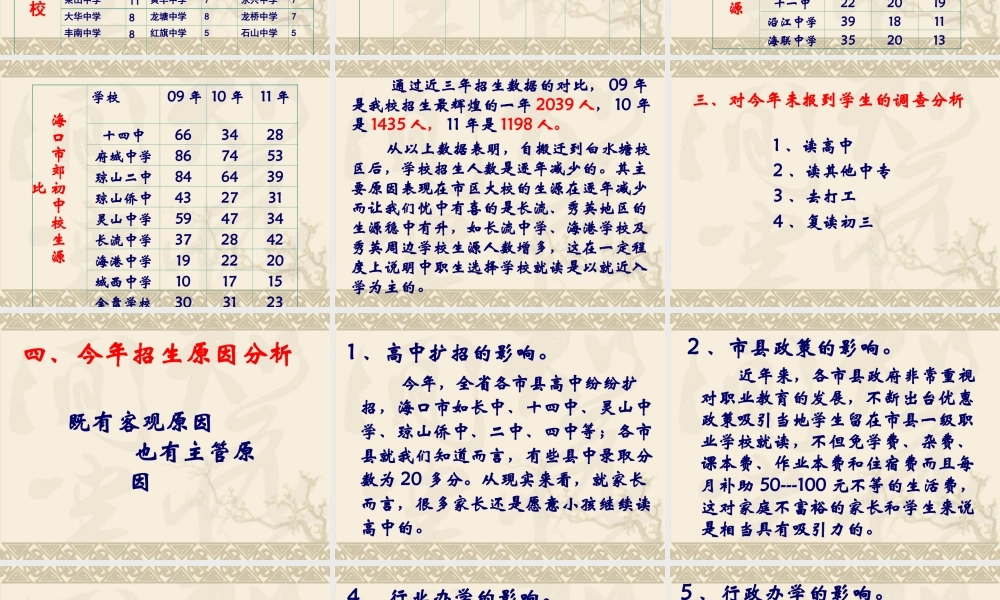 校
11
7
7
大华中学 8 龙塘中学 8 龙桥中学 7
丰南中学 8 红旗中学 5 石山中学 5
源
十一中 22 20 19
沿江中学 39 18 11
海联中学 35 20 13
海口市郊初中校生源比
学校 09 年 10 年 11 年
十四中 66 34 28
府城中学 86 74 53
琼山二中 84 64 39
琼山侨中 43 27 31
灵山中学 59 47 34
长流中学 37 28 42
海港中学 19 22 20
城西中学 10 17 15
金盘学校 30 31 23
通过近三年招生数据的对比， 09 年
是我校招生最辉煌的一年 2039 人， 10 年
是 1435 人， 11 年是 1198 人。
从以上数据表明，自搬迁到白水塘校
区后，学校招生人数是逐年减少的。其主
要原因表现在市区大校的生源在逐年减少
而让我们忧中有喜的是长流、秀英地区的
生源稳中有升，如长流中学、海港学校及
秀英周边学校生源人数增多，这在一定程
度上说明中职生选择学校就读是以就近入
学为主的。
三、对今年未报到学生的调查分析
1 、读高中
2 、读其他中专
3 、去打工
4 、复读初三
四、今年招生原因分析
既有客观原因
也有主管原
因
1 、高中扩招的影响。
今年，全省各市县高中纷纷扩
招，海口市如长中、十四中、灵山中
学、琼山侨中、二中、四中等；各市
县就我们知道而言，有些县中录取分
数为 20 多分。从现实来看，就家长
而言，很多家长还是愿意小孩继续读
高中的。
2 、市县政策的影响。
近年来，各市县政府非常重视
对职业教育的发展，不断出台优惠
政策吸引当地学生留在市县一级职
业学校就读，不但免学费、杂费、
课本费、作业本费和住宿费而且每
月补助 50---100 元不等的生活费，
这对家庭不富裕的家长和学生来说
是相当具有吸引力的。
4 、行业办学的影响。
5 、行政办学的影响。